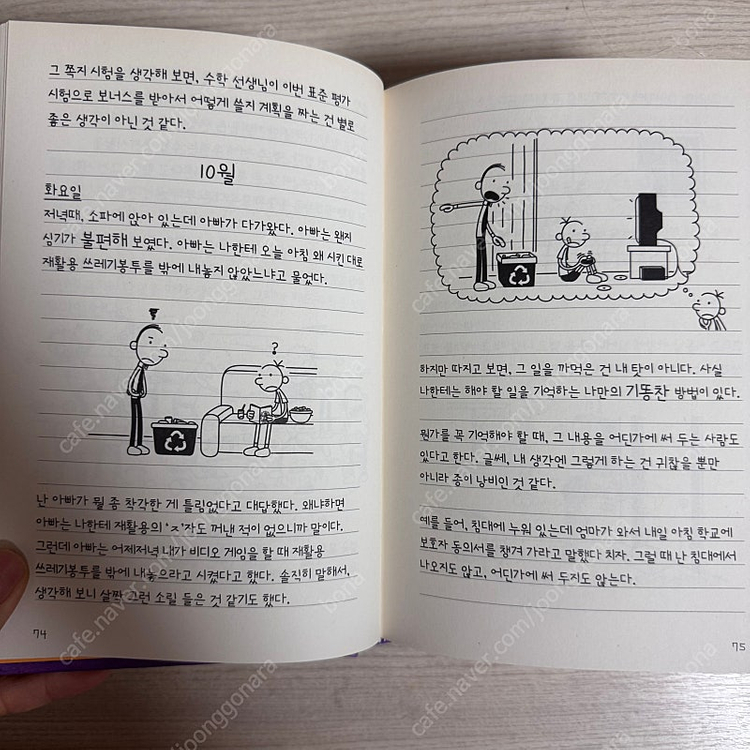 그 쪽지 시험을 생각해 보면, 수학 선생님이 이번 표준 평가
시험으로 보너스를 받아서 어떻게 쓸지 계획을 짜는 건 별로
좋은 생각이 아닌 것 같다.
10월
화요일
저녁때, 소파에 앉아 있는데 아빠가 다가왔다. 아빠는 왠지
심기가 불편해 보였다. 아빠는 나한테 오늘 아침 왜 시킨 대로
재활용 쓰레기봉투를 밖에 내놓지 않았느냐고 물었다.
?
난 아빠가 뭘 좀 착각한 게 틀림없다고 대답했다. 왜냐하면
아빠는 나한테 재활용의 'ㅈ'자도 꺼낸 적이 없으니까 말이다.
그런데 아빠는 어제저녁 내가 비디오 게임을 할 때 재활용
쓰레기봉투를 밖에 내놓으라고 시켰다고 했다. 솔직히 말해서,
생각해 보니 살짝 그런 소릴 들은 것 같기도 했다.
74
하지만 따지고 보면, 그 일을 까먹은 건 내 탓이 아니다. 사실
나한테는 해야 할 일을 기억하는 나만의 기똥찬 방법이 있다.
뭔가를 꼭 기억해야 할 때, 그 내용을 어딘가에 써 두는 사람도
있다고 한다. 글쎄, 내 생각엔 그렇게 하는 건 귀찮을 뿐만
아니라 종이 낭비인 것 같다.
예를 들어, 침대에 누워 있는데 엄마가 와서 내일 아침 학교에
보호자 동의서를 챙겨 가라고 말했다 치자. 그럴 때 난 침대에서
나오지도 않고, 어딘가에 써 두지도 않는다.
75
cafe.naver.com/joonggonara